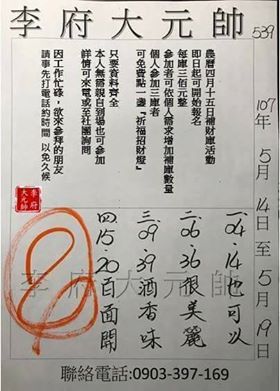 李府大元帥
539
107年5月14日至5月19日
農曆四月十五日補財庫活動
即日起可開始報名
每庫三佰元整
參加者可依個人需求增加補庫數量
個人參加三庫者
可免費點一盞『祈福招財燈』
只要資料齊全
本人無需親自到場也可參加
詳情可來電或至社團詢問
因工作忙碌，欲來參拜的朋友
請事先打電話約時間 以免久候
李府大元帥
一04.14也可以
二06.36很美麗
三09.39酒香味
四15.20百面開
李府大元帥
聯絡電話:0903-397-169